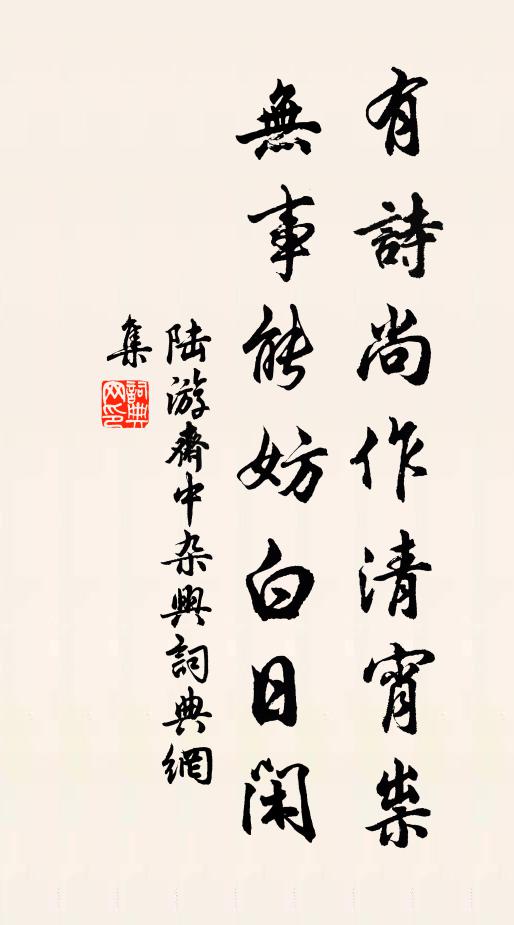 有詩尚作清宵祟
無事能妨白日閑
陆游齋中杂興詞典網
集
詞典網印